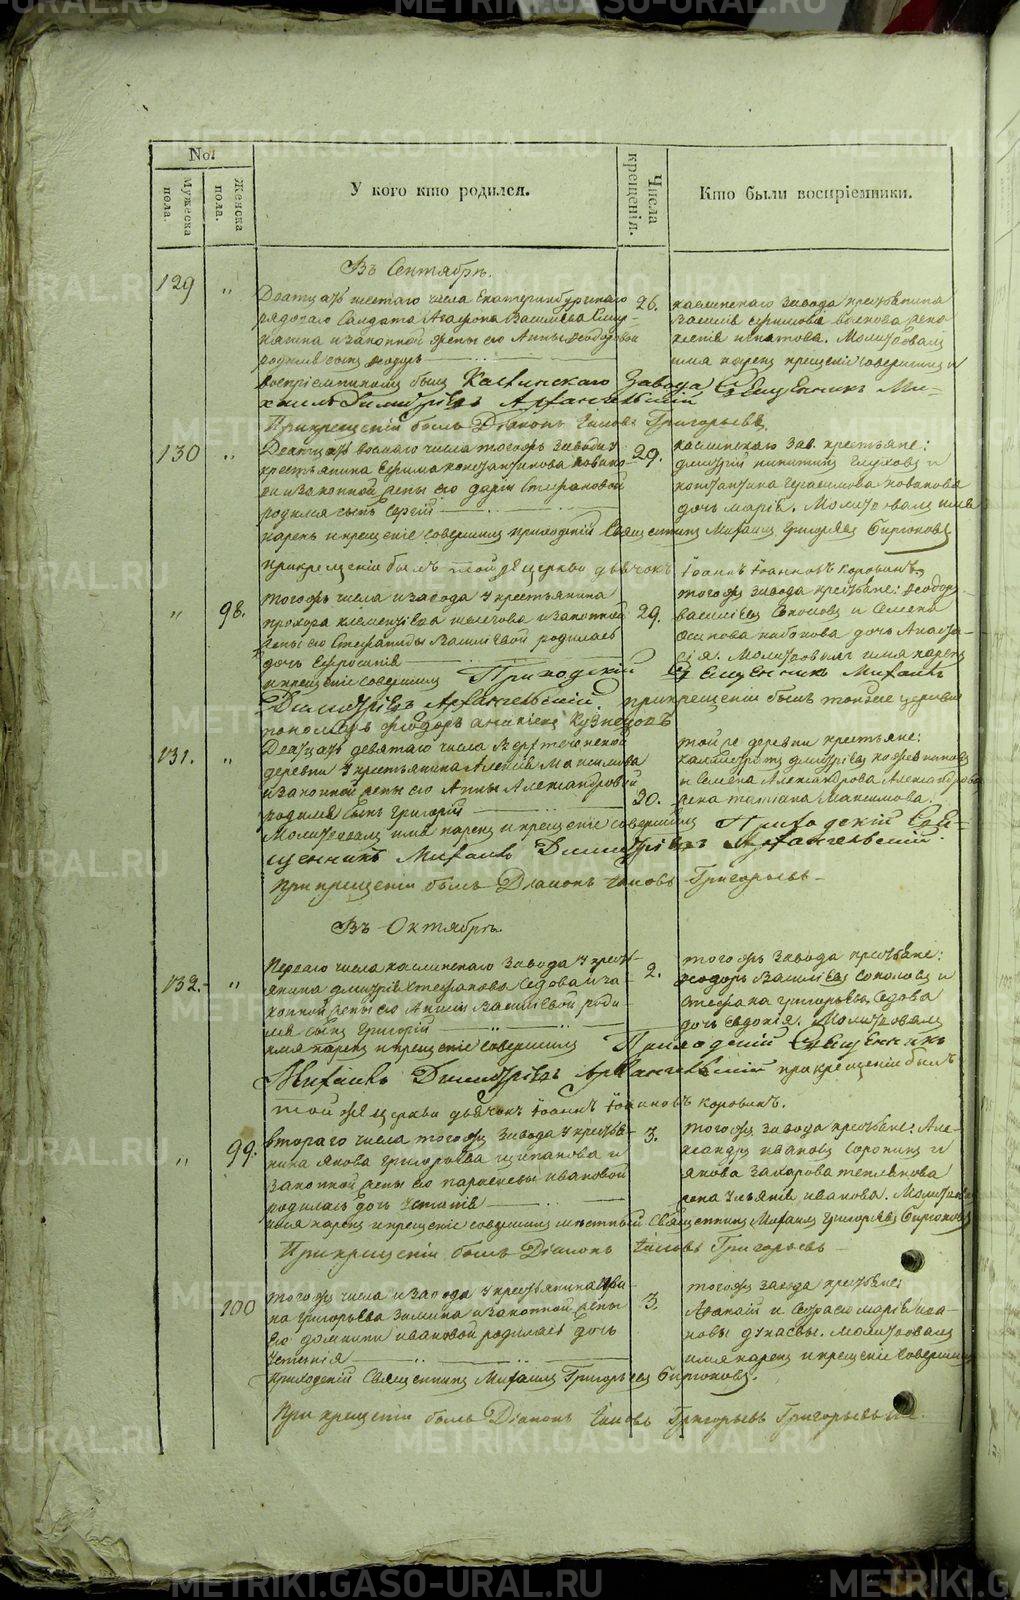 №!
Мужеска пола.
Женска пола.
У кого кто родился.
Числа крещенія.
Кто были воспріемники.
Въ Сентябрѣ.
129 " Двадцать шестаго числа Екатеринбургскаго 26. каслинскаго завода крестьянина
рядоваго Солдата Агафона Васильева
законной жены его Анны Ѳеодоровой игнатова. Молитвовалъ
родился сынъ Ѳеодоръ имя нарекъ крещеніе совершилъ и
воспріемникомъ былъ Каслинскаго Завода Священникъ Ми-
хаилъ Димитріевъ Архангельскій
При крещеніи былъ Діаконъ Іаковъ Григорьевъ.
130 " Двадцать восмаго числа тогожъ завода у 29. каслинскаго зав. крестьяне:
крестьянина Ефима константинова дмитрій никитинъ глуховъ и
законной жены его дарьи Стефановой константина герасимова
родился сынъ Сергій дочь марія. Молитвовалъ имя
нарекъ и крещеніе совершилъ приходскій Священникъ Михаилъ Григорьевъ Бирюковъ
при крещеніи былъ тойже церкви дьячокъ Іоаннъ Іоанновъ Коровинъ.
" 98. тогожъ числа и завода у крестьянина 29. тогожъ завода крестьяне: Ѳеодоръ
прохора климентіева и законной василіевъ Соколовъ и Семена
жены его Стефаниды Василіевой родилась Осипова набокова дочь Анаста-
дочь Ефросинія сія. Молитвовалъ имя нарекъ
и крещеніе совершилъ Приходскій Священникъ Михаилъ
Димитріевъ Архангельскій. при крещеніи былъ тойже церкви
пономарь Ѳеодоръ Кузнецовъ
131. " Двадцать девятаго числа тойже деревни крестьяне:
деревни у крестьянина Алексія Максимова дмитріевъ
и законной жены его Анны Александровой и Семена Александрова
родился сынъ Григорій 20. жена татіана Максимова.
Молитвовалъ имя нарекъ и крещеніе совершилъ Приходскій Свя-
щенникъ Михаилъ Димитріевъ Архангельскій.
При крещеніи былъ Діаконъ Іаковъ Григорьевъ
Въ Октябрѣ.
132. " Перваго числа каслинскаго завода у крест- 2. тогожъ завода крестьяне:
янина дмитрія стефанова Седова и за- Ѳеодоръ Василіевъ Соколовъ и
конной жены его Василіевой роди стефана григорьевъ Седова
лся сынъ Григорій дочь Евдокія. Молитвовалъ
имя нарекъ и крещеніе совершилъ Приходскій Священникъ
Михаилъ Димитріевъ Архангельскій при крещеніи былъ
той же церкви дьячокъ Іоаннъ Іоанновъ Коровинъ.
" 99. втораго числа тогожъ завода у крестья- 3. тогожъ завода крестьяне: Але-
нина якова григорьева щипанова и ксандръ ивановъ Сорокинъ и
законной жены его параскевы ивановой якова захарова теплякова
родилась дочь жена Ульянія иванова.
имя нарекъ и крещеніе совершилъ мѣстный Священникъ Михаилъ Григорьевъ Бирюковъ
При крещеніи былъ Діаконъ Іаковъ Григорьевъ
100 тогожъ числа и завода у крестьянина ива- 3. тогожъ завода крестьяне:
на григорьева Зимина и законной жены
его домники ивановой родилась дочь новы дунаевы. молитвовалъ
имя нарекъ и крещеніе совершилъ
приходскій Священникъ Михаилъ Григорьевъ Бирюковъ.
При крещеніи былъ Діаконъ Іаковъ Григорьевъ Григорьевъ
METRIKI.GASO-URAL.RU